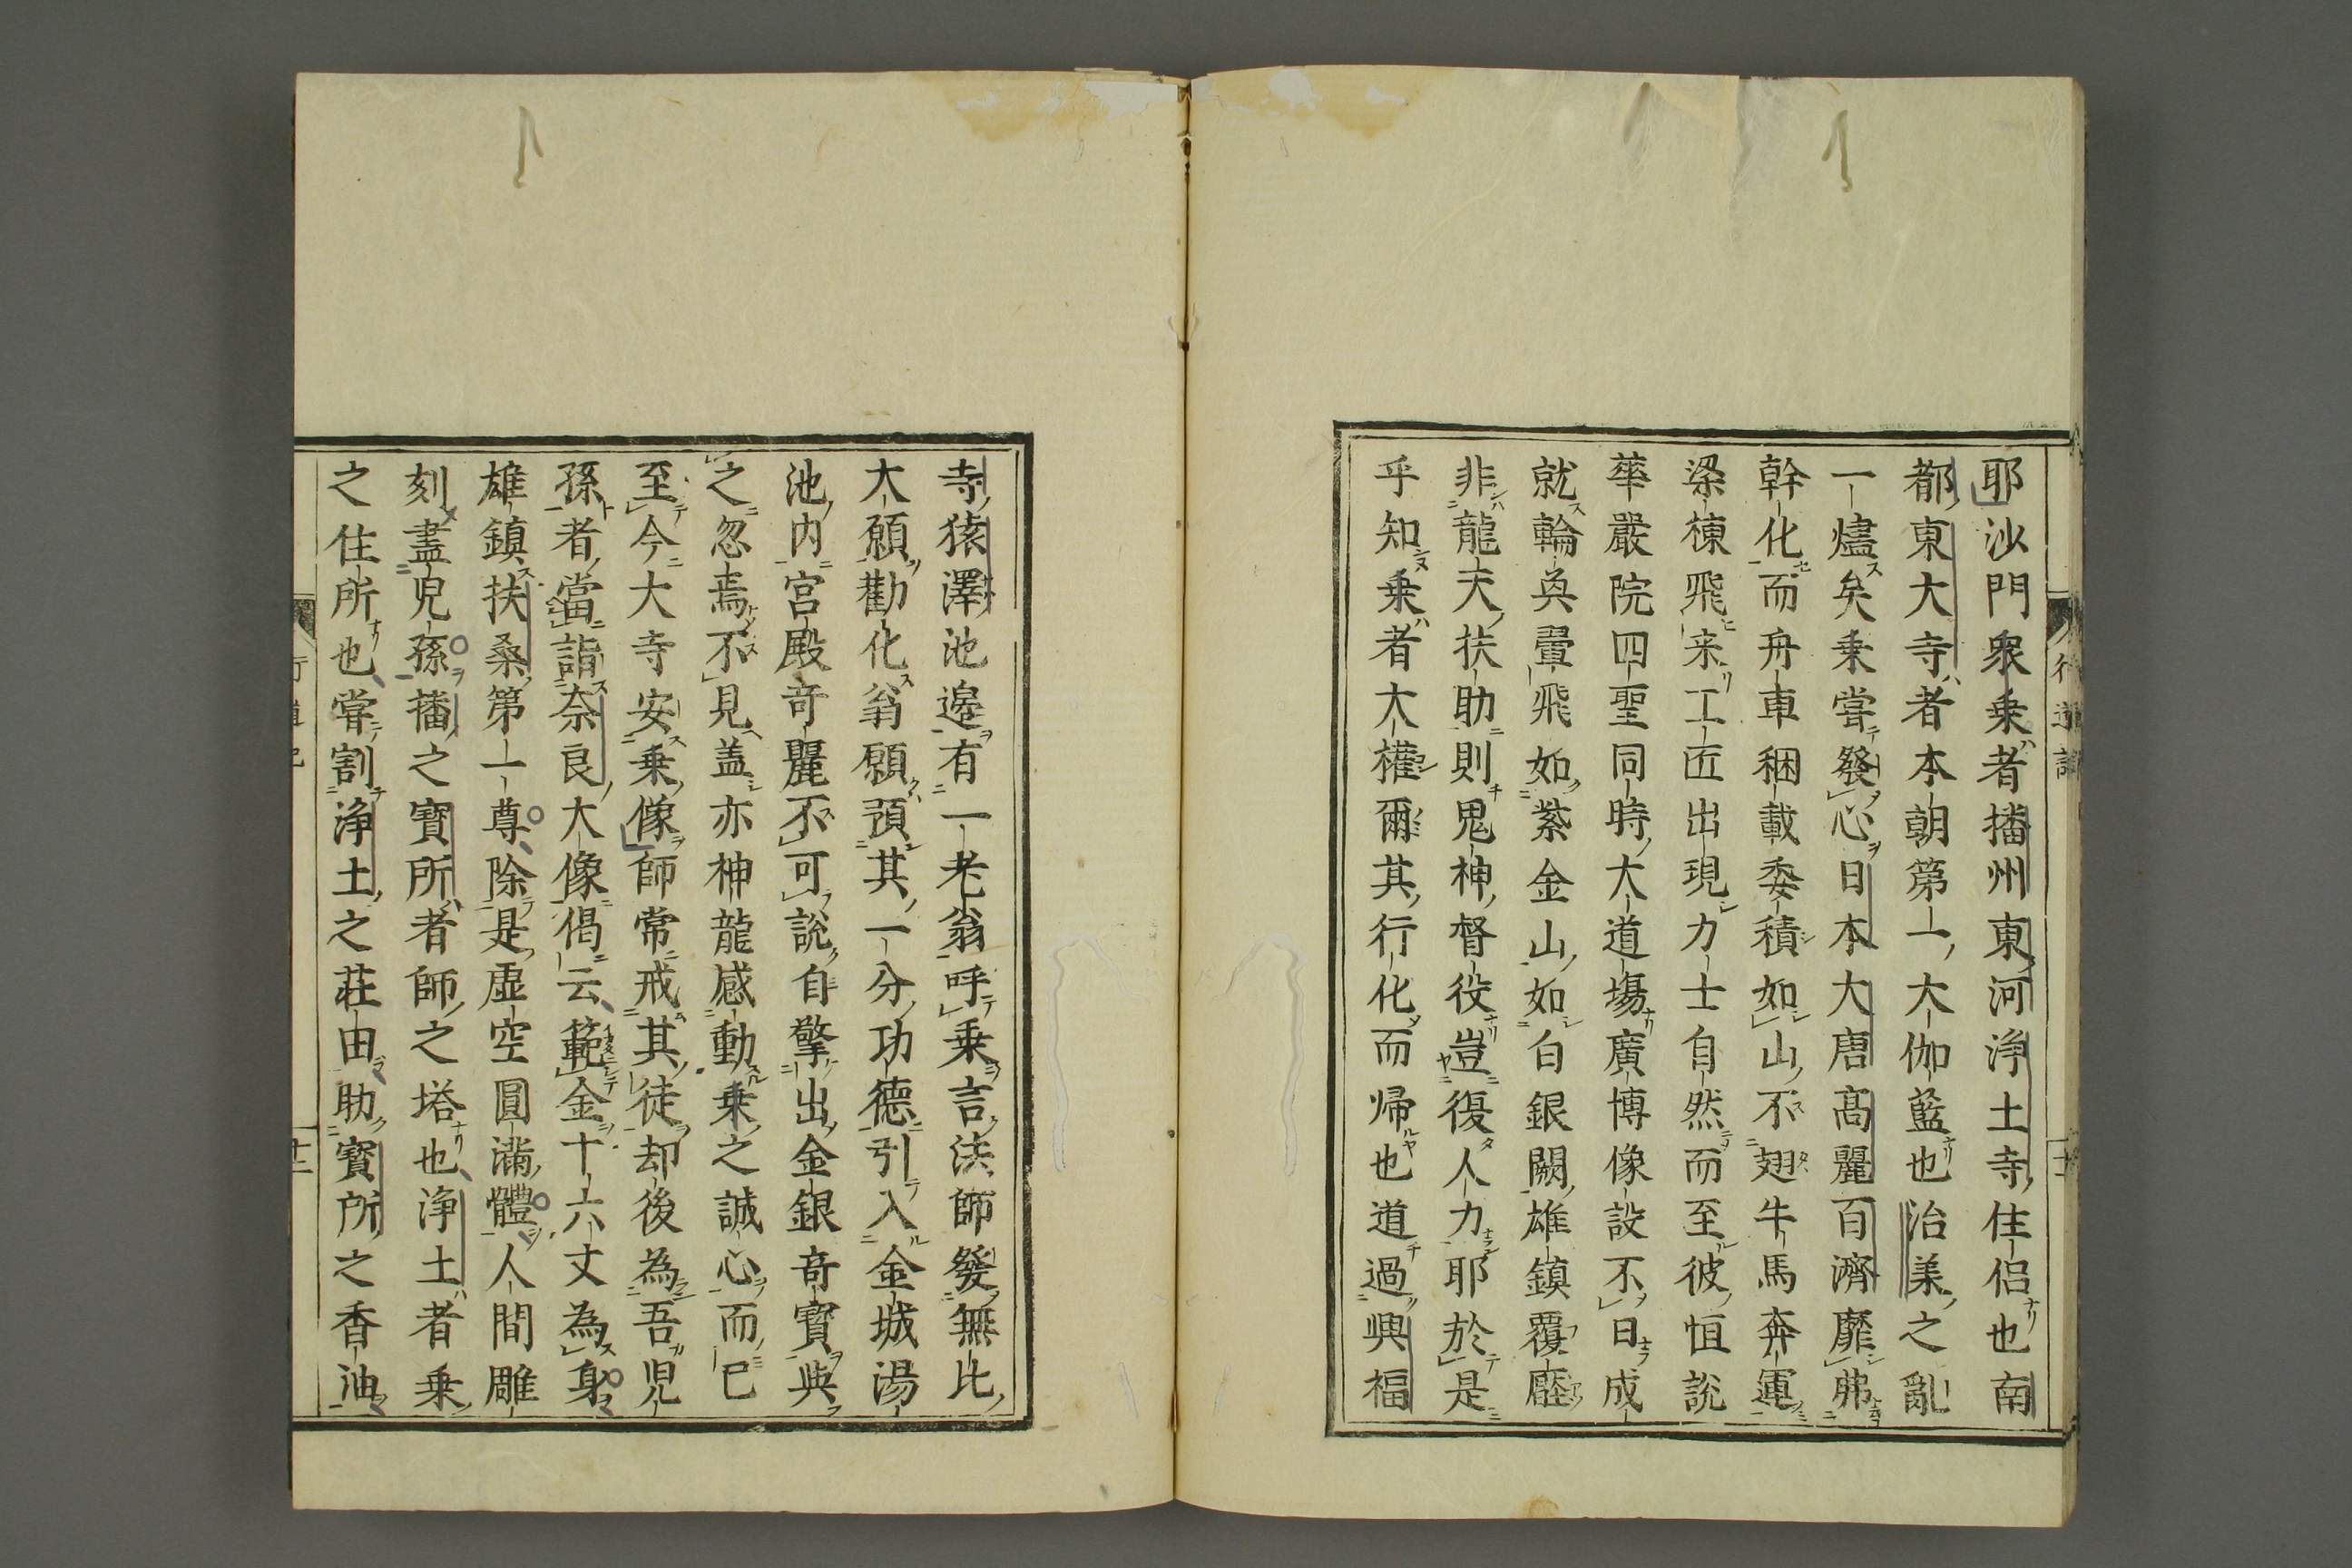 耶沙門衆乗者播州東河浄土寺住侶也南
都東大寺者本朝第一大伽藍也治美之亂
一燼矣乗嘗發心日本大唐髙麗百濟靡弗
幹化而舟車稇載委積如山不翅牛馬奔運
梁棟飛来工匠出現力士自然而至彼恒說
華嚴院四聖同時大道場廣博像設不日成
就輪奐翬飛如紫金山如白銀闕雄鎮覆壓
非龍天扶助則鬼神督役豈復人力耶於是
乎知乗者大權爾其行化而帰也道過興福
寺猿澤池邊有一老翁呼乗言法師發無比
大願勸化翁願預其一分功德引入金城湯
池内宮殿竒麗不可說自擎出金銀竒寳與
之忽焉不見盖亦神龍感動乗之誠心而已
至今大寺安乗像師常戒其徒却後為吾児
孫者當詣奈良大像偈云範金十六丈為身
雄鎮扶桑第一尊除是虚空圓滿體人間雕
刻盡児孫播之寳所者師之塔也浄土者乗
之住所也嘗割浄土之荘由助寳所之香油
行道記
十二